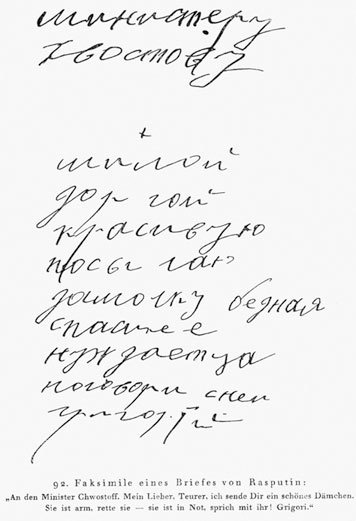 министеру
хвостову
+
милой
дор гой
красивую
посы лаю
дамочку бедная
спаси ее
нуждаетца
поговори с ней
григорий
92. Faksimile eines Briefes von Rasputin:
„An den Minister Chwostoff. Mein Lieber, Teurer, ich sende Dir ein schönes Dämchen.
Sie ist arm, rette sie — sie ist in Not, sprich mit ihr! Grigori.“